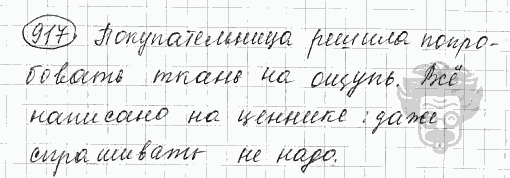 917 Покупательница решила попро-
бовать ткань на ощупь. Всё
написано на ценнике: даже
спрашивать не надо.